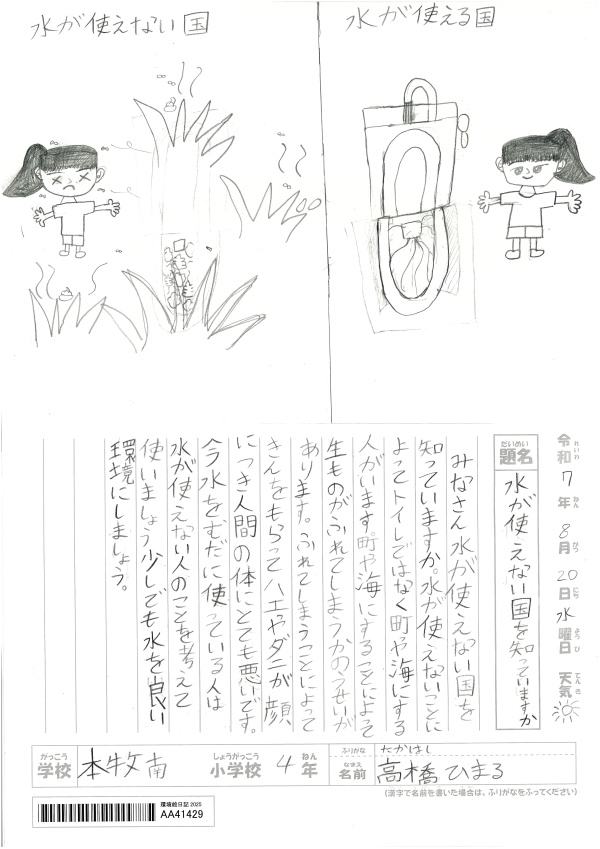 水が使えない国
水が使える国
令和7年8月20日水曜日 天気
れいわ ねん がつ にち ようび てんき
だいめい
題名
水が使えない国を知っていますか
みなさん水が使えない国を
知っていますか。水が使えないことに
よってトイレではなく町や海にする
人がいます。町や海にすることによって
生ものがふれてしまうかのうせいが
あります。ふれてしまうことによって
きんをもらってハエやダニが顔
につき人間の体にとても悪いです。
今水をむだに使っている人は
水が使えない人のことを考えて
使いましょう少しでも水を良い
環境にしましょう。
がっこう しょうがっこう ねん
学校 本牧南 小学校 4年
ふりがな たかはし
なまえ
名前 高橋ひまる
(漢字で名前を書いた場合は、ふりがなをふってください)
環境絵日記 2025
AA41429